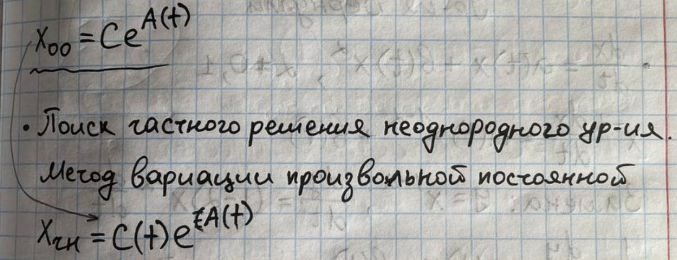 X₀₀ = Ce^{A(t)}
• Поиск частного решения неоднородного ур-ия.
Метод вариации произвольной постоянной
Xчн = C(t)e^{A(t)}